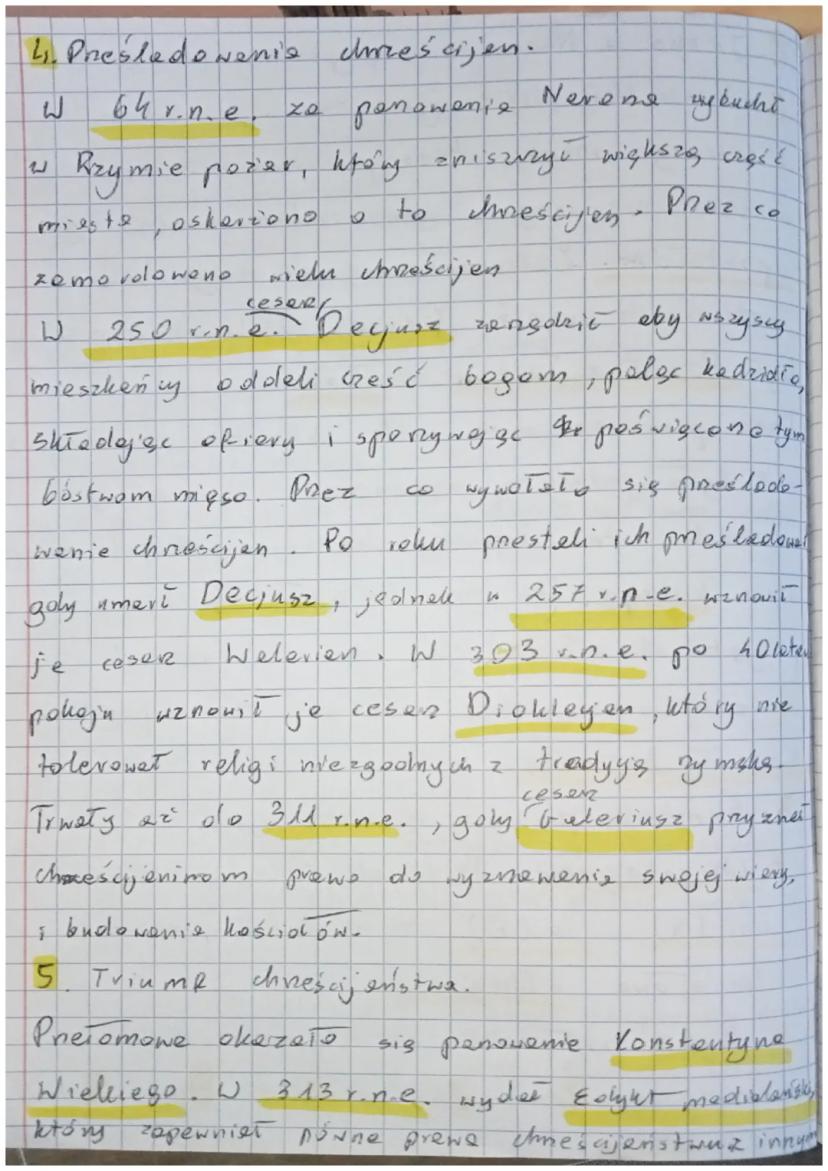 4. Prześladowania chrześcijan.
W 64 r.n.e. za panowania Nerona wybuchł
w Rzymie pożar, który zniszczył większą część
miasta, oskarżono o to chrześcijan. Przez co
zamordowano wielu chrześcijan
cesarz
W 250 r.n.e. Decjusz zarządził aby wszyscy
mieszkańcy oddali cześć bogom, paląc kadzidła,
składając ofiary i spożywając poświęcone tym
bóstwom mięso. Przez co wywołało się prześlado-
wanie chrześcijan. Po roku przestali ich prześladować
gdy umarł Decjusz, jednak w 257 r.n.e. wznowił
je cesarz Walerian. W 303 r.n.e. po 40 latach
pokoju wznowił je cesarz Dioklecjan, który nie
tolerował religi niezgodnych z tradycją rzymską.
cesarz
Trwały aż do 311 r.n.e., gdy Galeriusz przyznał
chrześcijaninom prawo do wyznawania swojej wiary,
i budowania kościołów.
5. Triumf chrześcijaństwa.
Przełomowe okazało się panowanie Konstantyna
Wielkiego. W 313 r.n.e. wydał Edykt mediolański,
który zapewniał równe prawa chrześcijaństwu z innymi